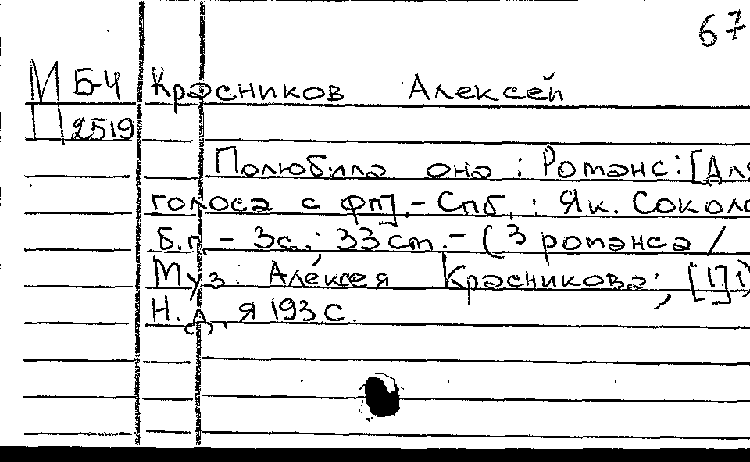 67
М Б-4 Красников Алексей
П 2519
Полюбила она : Романс: [Для
голоса с фп]. - Спб. : Як. Соколо
Б.г. - 3с.; 33 cm. - (3 романса /
Муз. Алексея Красникова; [1])
Н. Д. Я 193 С.